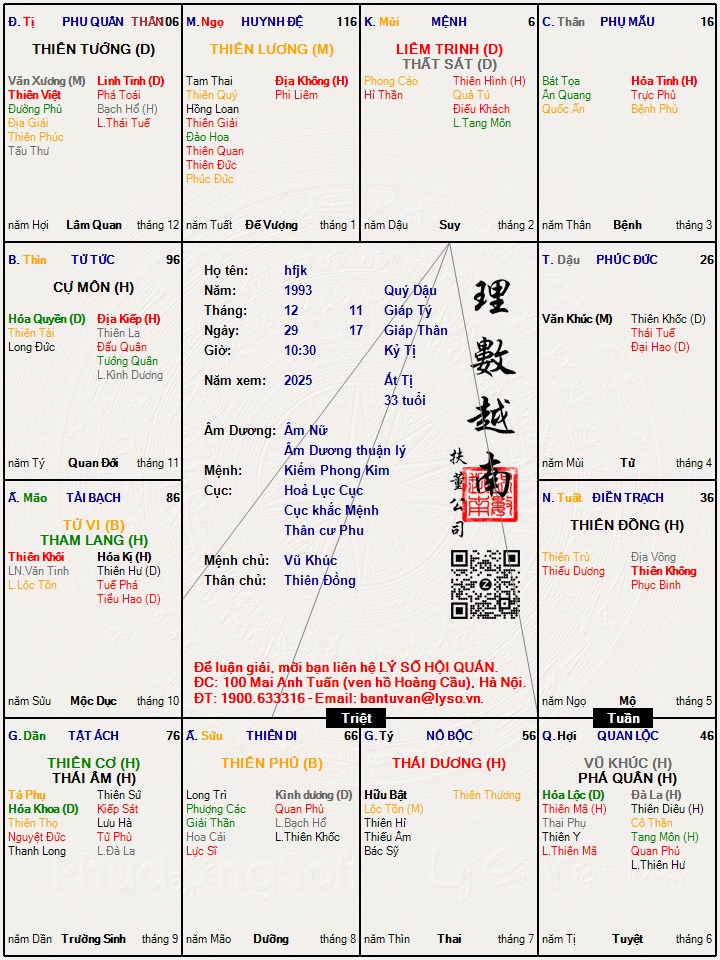 Đ. Tị PHU QUÂN THÂN 106
THIÊN TƯỚNG (D)
Văn Xương (M) Linh Tinh (D)
Thiên Việt Phá Toái
Đường Phù Bạch Hổ (H)
Địa Giải L.Thái Tuế
Thiên Phúc
Tấu Thư
năm Hợi Lâm Quan tháng 12
M. Ngọ HUYNH ĐỆ 116
THIÊN LƯƠNG (M)
Tam Thai Địa Không (H)
Thiên Quý Phi Liêm
Hồng Loan
Thiên Giải
Đào Hoa
Thiên Quan
Thiên Đức
Phúc Đức
năm Tuất Đế Vượng tháng 1
K. Mùi MỆNH 6
LIÊM TRINH (D)
THẤT SÁT (D)
Phong Cáo Thiên Hình (H)
Hỉ Thần Quả Tú
Điếu Khách
L.Tang Môn
năm Dậu Suy tháng 2
C. Thân PHỤ MẪU 16
Bát Tọa Hỏa Tinh (H)
Ân Quang Trực Phù
Quốc Ấn Bệnh Phù
năm Thân Bệnh tháng 3
B. Thìn TỬ TỨC 96
CỰ MÔN (H)
Hóa Quyền (D) Địa Kiếp (H)
Thiên Tài Thiên La
Long Đức Đẩu Quân
Tướng Quân
L.Kình Dương
năm Tý Quan Đới tháng 11
Họ tên: hfjk
Năm: 1993 Quý Dậu
Tháng: 12 11 Giáp Tý
Ngày: 29 17 Giáp Thân
Giờ: 10:30 Kỷ Tị
Năm xem: 2025 Ất Tị
33 tuổi
Âm Dương: Âm Nữ
Âm Dương thuận lý
Mệnh: Kiếm Phong Kim
Cục: Hoả Lục Cục
Cục khắc Mệnh
Thân cư Phu
Mệnh chủ: Vũ Khúc
Thân chủ: Thiên Đồng
理數越南
扶董公司
Để luận giải, mời bạn liên hệ LÝ SỐ HỘI QUÁN.
ĐC: 100 Mai Anh Tuấn (ven hồ Hoàng Cầu), Hà Nội.
ĐT: 1900.633316 - Email: bantuvan@lyso.vn.
T. Dậu PHÚC ĐỨC 26
Văn Khúc (M) Thiên Khốc (D)
Thái Tuế
Đại Hao (D)
năm Mùi Tử tháng 4
Ấ. Mão TÀI BẠCH 86
TỬ VI (B)
THAM LANG (H)
Thiên Khôi Hóa Kị (H)
LN.Văn Tinh Thiên Hư (D)
L.Lộc Tồn Tuế Phá
Tiểu Hao (D)
năm Sửu Mộc Dục tháng 10
N. Tuất ĐIỀN TRẠCH 36
THIÊN ĐỒNG (H)
Thiên Trù Địa Võng
Thiếu Dương Thiên Không
Phục Binh
năm Ngọ Mộ tháng 5
Triệt
Tuần
G. Dần TẬT ÁCH 76
THIÊN CƠ (H)
THÁI ÂM (H)
Tả Phụ Thiên Sứ
Hóa Khoa (D) Kiếp Sát
Thiên Thọ Lưu Hà
Nguyệt Đức Tử Phù
Thanh Long L.Đà La
năm Dần Trường Sinh tháng 9
Ấ. Sửu THIÊN DI 66
THIÊN PHỦ (B)
Long Trì Kình dương (D)
Phượng Các Quan Phù
Giải Thần L.Bạch Hổ
Hoa Cái L.Thiên Khốc
Lực Sĩ
năm Mão Dưỡng tháng 8
G. Tý NÔ BỘC 56
THÁI DƯƠNG (H)
Hữu Bật Thiên Thương
Lộc Tồn (M)
Thiên Hỉ
Thiếu Âm
Bác Sỹ
năm Thìn Thai tháng 7
Q. Hợi QUAN LỘC 46
VŨ KHÚC (H)
PHÁ QUÂN (H)
Hóa Lộc (D) Đà La (H)
Thiên Mã (H) Thiên Diêu (H)
Thai Phụ Cô Thần
Thiên Y Tang Môn (H)
L.Thiên Mã Quan Phủ
L.Thiên Hư
năm Tị Tuyệt tháng 6